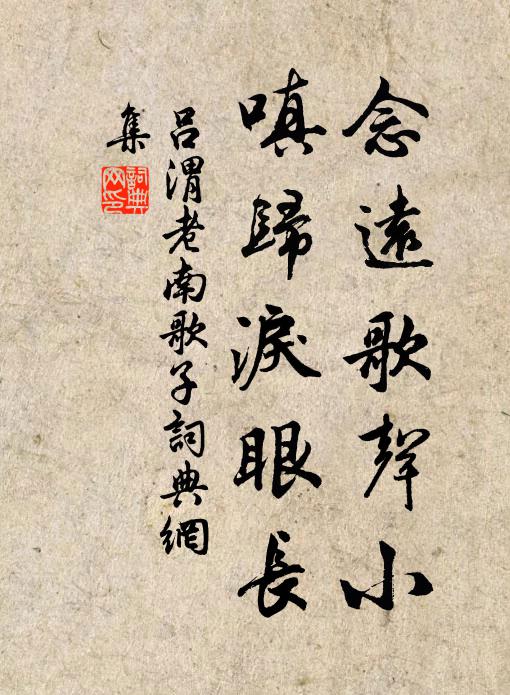 念遠歌聲小
嗔歸淚眼長
呂渭老南歌子詞典網
集
詞典
网印